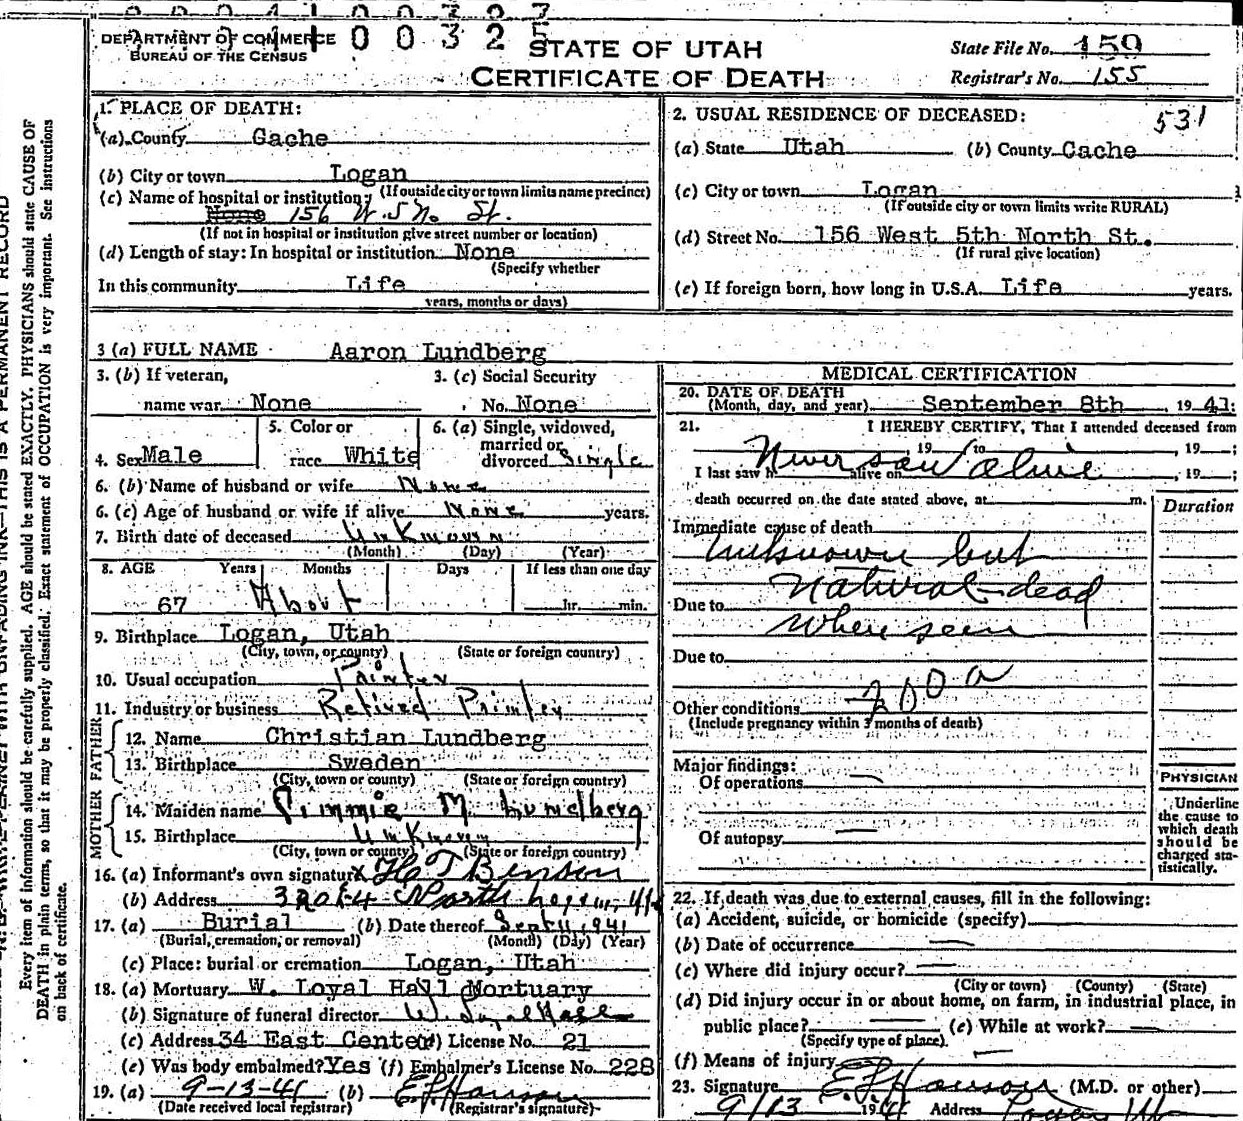 DEPARTMENT OF COMMERCE
BUREAU OF THE CENSUS
00325
STATE OF UTAH
CERTIFICATE OF DEATH
State File No. 150
Registrar's No. 155
1. PLACE OF DEATH:
(a) County Cache
(b) City or town Logan
(If outside city or town limits name precinct)
(c) Name of hospital or institution:
None 156 W. 5 No St.
(If not in hospital or institution give street number or location)
(d) Length of stay: In hospital or institution None
(Specify whether
In this community Life
years, months or days)
2. USUAL RESIDENCE OF DECEASED:
531
(a) State Utah (b) County Cache
(c) City or town Logan
(If outside city or town limits write RURAL)
(d) Street No. 156 West 5th North St.
(If rural give location)
(e) If foreign born, how long in U.S.A. Life years.
3 (a) FULL NAME Aaron Lundberg
3. (b) If veteran,
name war None
3. (c) Social Security
No. None
4. Sex Male
5. Color or
race White
6. (a) Single, widowed,
married or
divorced Single
6. (b) Name of husband or wife None
6. (c) Age of husband or wife if alive None years.
7. Birth date of deceased Unknown
(Month) (Day) (Year)
8. AGE Years Months Days If less than one day
67 About hr. min.
9. Birthplace Logan, Utah
(City, town, or county) (State or foreign country)
10. Usual occupation Painter
11. Industry or business Retired Painter
FATHER
12. Name Christian Lundberg
13. Birthplace Sweden
(City, town or county) (State or foreign country)
MOTHER
14. Maiden name M. Lundberg
15. Birthplace Unknown
(City, town or county) (State or foreign country)
16. (a) Informant's own signature X H T Benson
(b) Address North Logan, Ut
17. (a) Burial (b) Date thereof Sept 11, 1941
(Burial, cremation, or removal) (Month) (Day) (Year)
(c) Place: burial or cremation Logan, Utah
18. (a) Mortuary W. Loyal Hall Mortuary
(b) Signature of funeral director W. Loyal Hall
(c) Address 34 East Center (d) License No. 21
(e) Was body embalmed? Yes (f) Embalmer's License No. 228
19. (a) 9-13-41 (b) E. L. Hanson
(Date received local registrar) (Registrar's signature)
MEDICAL CERTIFICATION
20. DATE OF DEATH
(Month, day, and year) September 8th, 1941:
21. I HEREBY CERTIFY, That I attended deceased from
, 19 to , 19 ;
Never saw alive
I last saw h alive on , 19 ;
death occurred on the date stated above, at m.
Duration
Immediate cause of death
unknown but
natural - dead
Due to
when seen
Due to
200a
Other conditions
(Include pregnancy within 3 months of death)
Major findings:
Of operations
Of autopsy
PHYSICIAN
Underline
the cause to
which death
should be
charged sta-
tistically.
22. If death was due to external causes, fill in the following:
(a) Accident, suicide, or homicide (specify)
(b) Date of occurrence
(c) Where did injury occur?
(City or town) (County) (State)
(d) Did injury occur in or about home, on farm, in industrial place, in
public place? (e) While at work?
(Specify type of place)
(f) Means of injury
23. Signature E. L. Hanson (M.D. or other)
9/13 1941 Address Logan Ut
PERMANENT RECORD
Every item of information should be carefully supplied. AGE should be stated EXACTLY. PHYSICIANS should state CAUSE OF
DEATH in plain terms, so that it may be properly classified. Exact statement of OCCUPATION is very important. See instructions
on back of certificate.